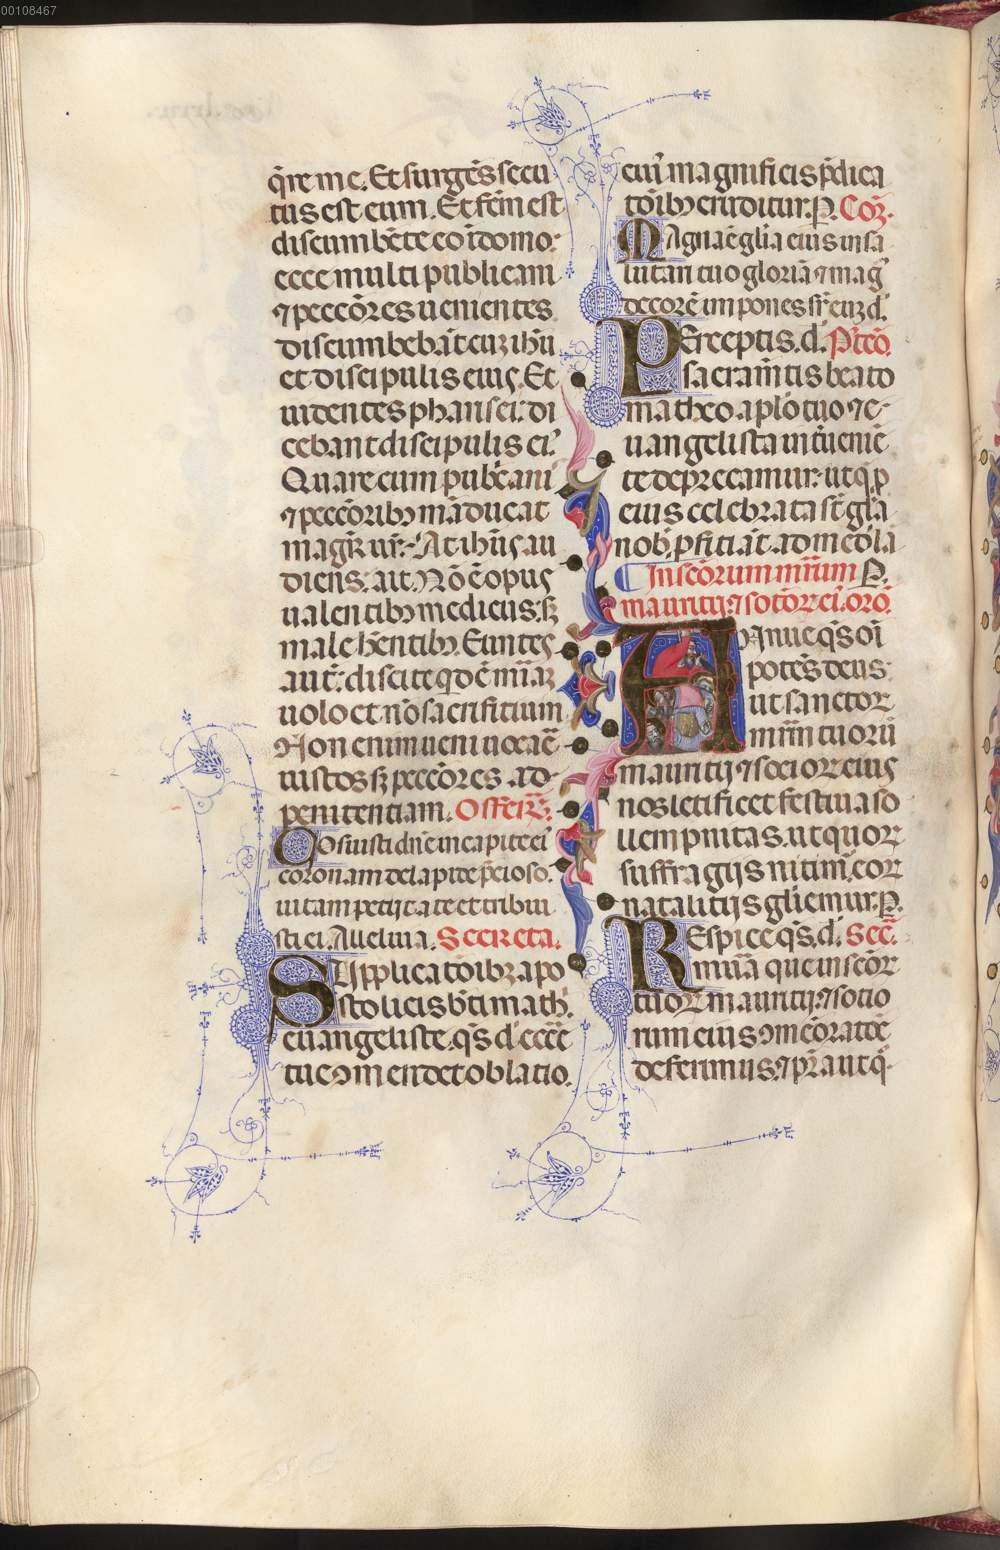 00108467
q̄re me. Et surgēs secu
tus est eum. Et fc̄m est
discumbēte eo ī domo:
ecce multi publicani
⁊ peccōres uenientes
discumbebāt cuꝫ ihū
et discipulis eius. Et
uidentes pharisei: di
cebant discipulis ei'.
Quare cum publ̄cani
⁊ peccōribꝫ māducat
magr̄ ur̄: At ihūs au
diens: ait. Nō ē opus
ualentibꝫ medicus: sꝫ
male hn̄tibꝫ. Euntes
aut̄: discite qd̄ ē mīaꝫ
uolo et nō sacrificium
Non enim ueni uocar̄
iustos sꝫ peccōres ad
penitentiam. Offeīr.
Posuisti dn̄e in capite ei
coronam de lapide p̄cioso.
uitam petijt a te et tribui
sti ei. Alleluia. Secreta.
Supplicatōibꝫ apo
stolicis bt̄i math'.
euangeliste. qs̄ d' ecc̄e
tue ↄmendet oblatio.
cui' magnificis p̄dica
tōibꝫ eruditur. P. Coꝫ.
Magna ē gl̄ia eius in sa
lutari tuo gloriā ⁊ maḡ
decorē impones sr̄ euꝫ d'.
Perceptis. d'. P'tcō.
sacram̄tis beato
matheo. aplō tuo ⁊ e
uangelista in t̄uenie
te deprecamur: ut q̄ p
eius celebrata st̄ gl̄a
nob' pficiāt. ad medl̄a
In scōrum mr̄ium P.
mauritij ⁊ sotōꝝ ei. orō.
Annue qs̄ oī
potēs deus:
ut sanctoꝝ
mr̄m tuorū
mauritij ⁊ socioꝝ eius
nos letificet festiua so
lempnitas. ut quoꝝ
suffragijs nitim̄. eoꝝ
natalitijs gl̄iemur. P.
Respice qs̄. d'. Sec̄.
mūa que in scōꝝ
tuoꝝ mauritij ⁊ sotio
rum eius ↄmēoratōe
deferimus. ⁊ pr̄a ut q̄